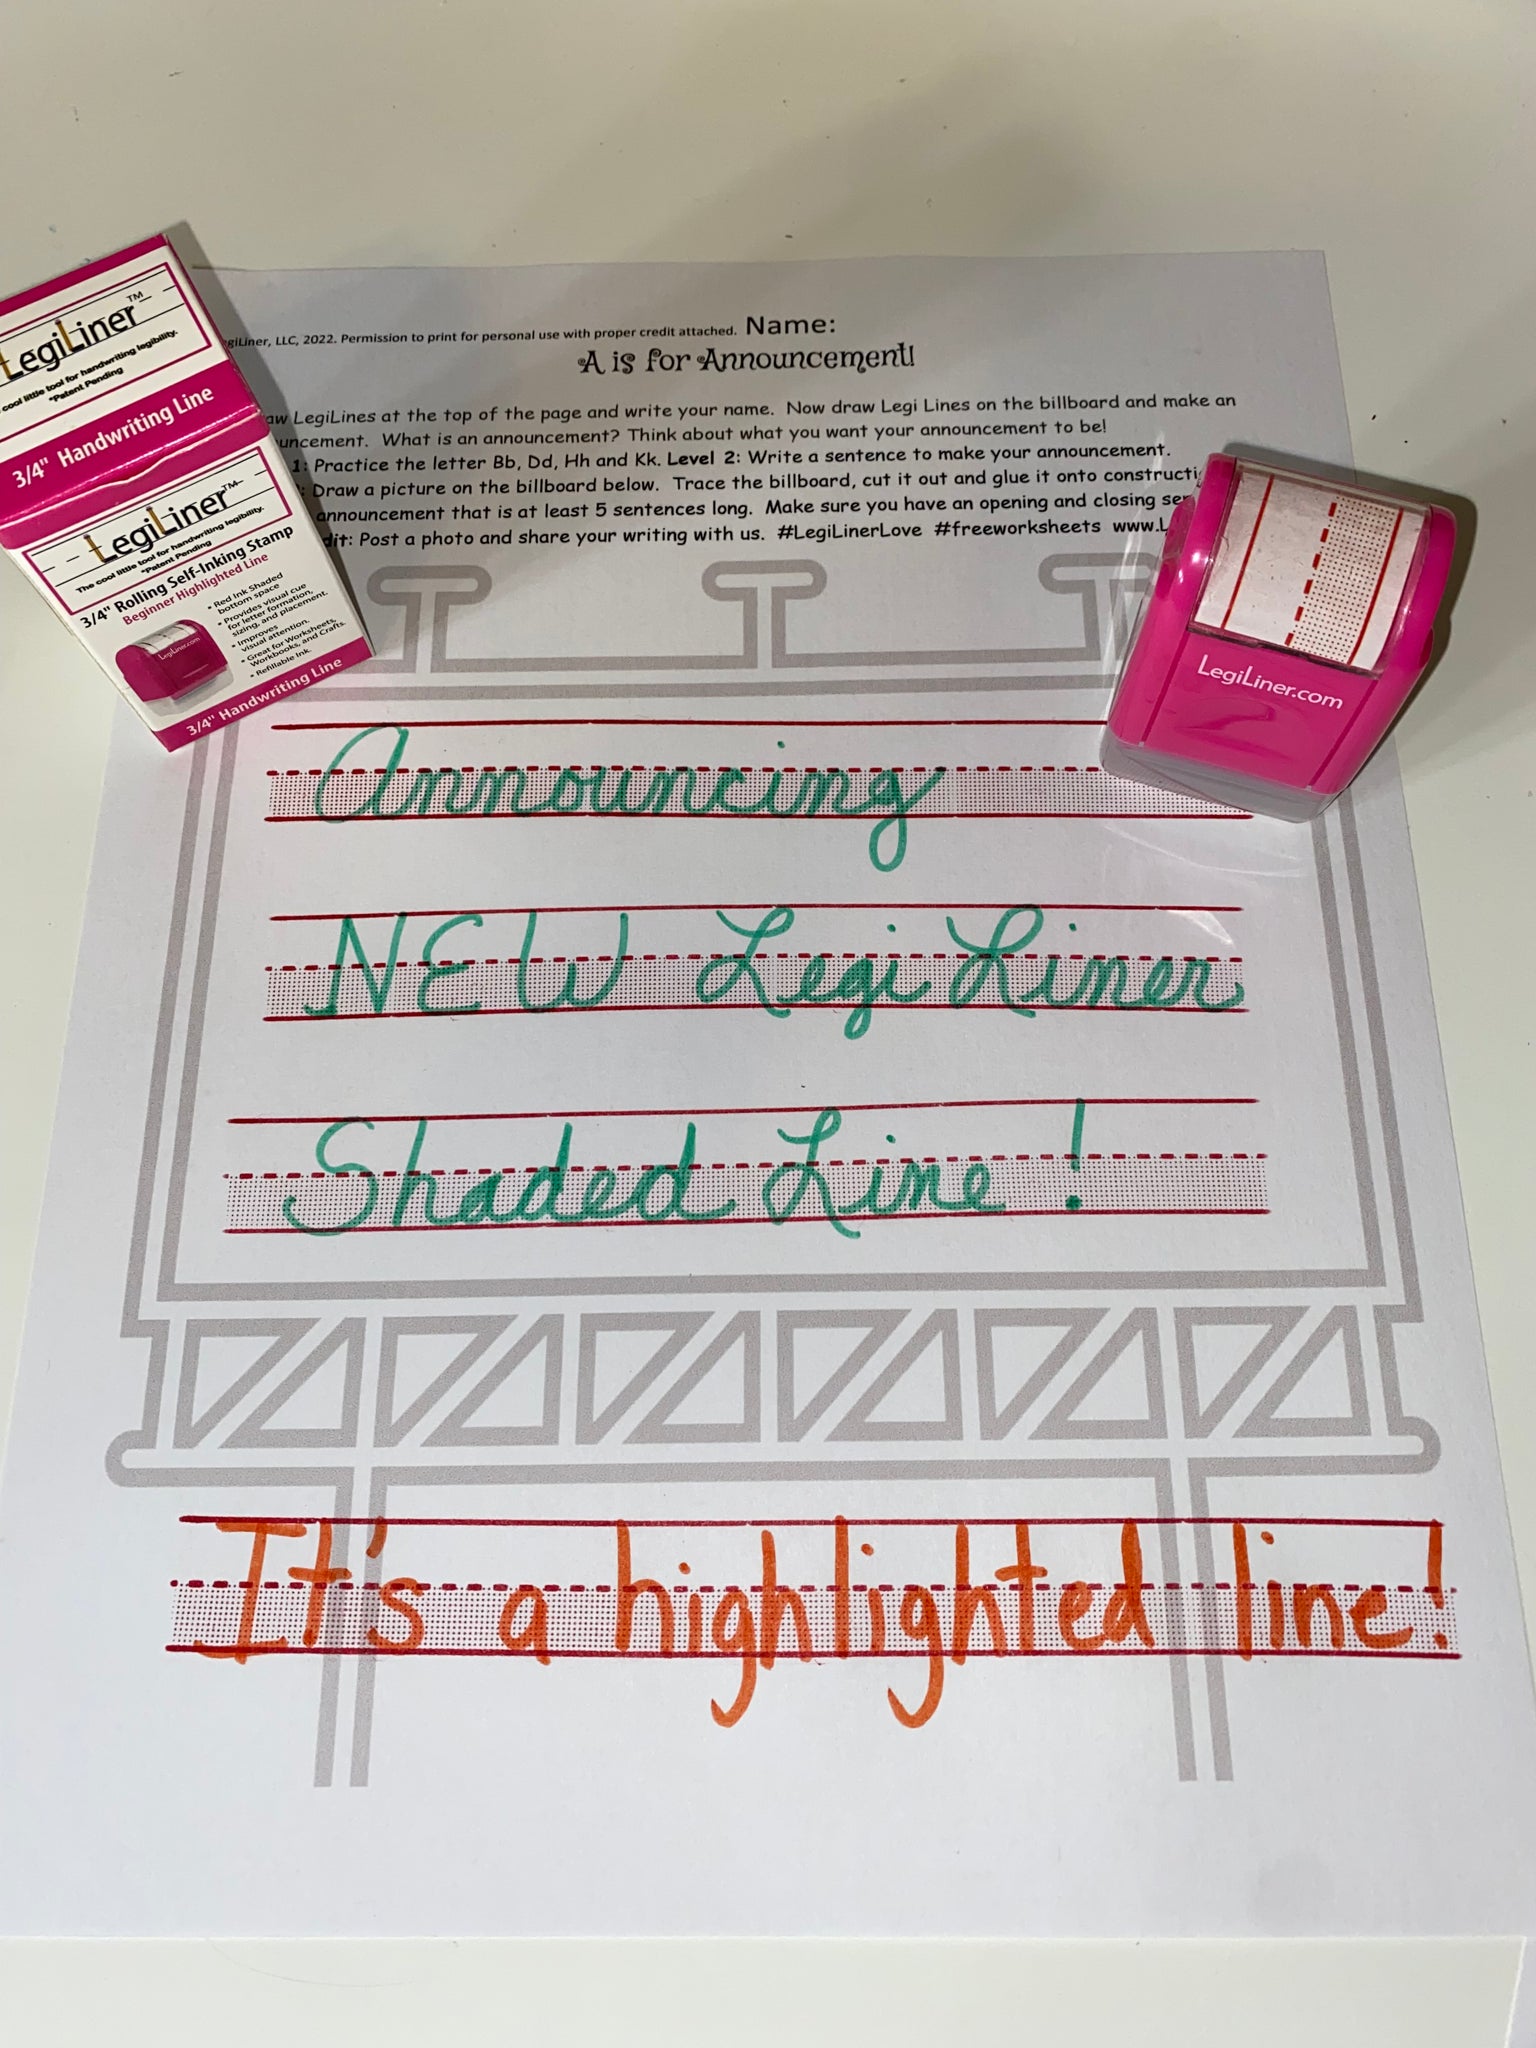 LegiLiner™
cool little tool for handwriting legibility.
*Patent Pending
3/4" Handwriting Line
LegiLiner™
The cool little tool for handwriting legibility.
*Patent Pending
3/4" Rolling Self-Inking Stamp
Beginner Highlighted Line
• Red Ink Shaded
bottom space
• Provides visual cue
for letter formation,
sizing, and placement.
• Improves
visual attention.
• Great for Worksheets,
Workbooks, and Crafts.
• Refillable Ink.
LegiLiner.com
3/4" Handwriting Line
giLiner, LLC, 2022. Permission to print for personal use with proper credit attached. Name:
A is for Announcement!
aw LegiLines at the top of the page and write your name. Now draw Legi Lines on the billboard and make an
uncement. What is an announcement? Think about what you want your announcement to be!
1: Practice the letter Bb, Dd, Hh and Kk. Level 2: Write a sentence to make your announcement.
: Draw a picture on the billboard below. Trace the billboard, cut it out and glue it onto constructi
announcement that is at least 5 sentences long. Make sure you have an opening and closing se
dit: Post a photo and share your writing with us. #LegiLinerLove #freeworksheets www.L
LegiLiner.com
Announcing
NEW LegiLiner
Shaded Line!
It's a highlighted line!